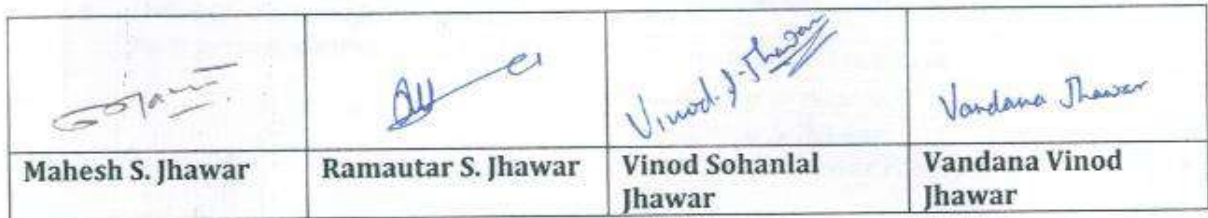 Vinod S. Jhawar
Vandana Jhawar
Mahesh S. Jhawar
Ramautar S. Jhawar
Vinod Sohanlal
Jhawar
Vandana Vinod
Jhawar